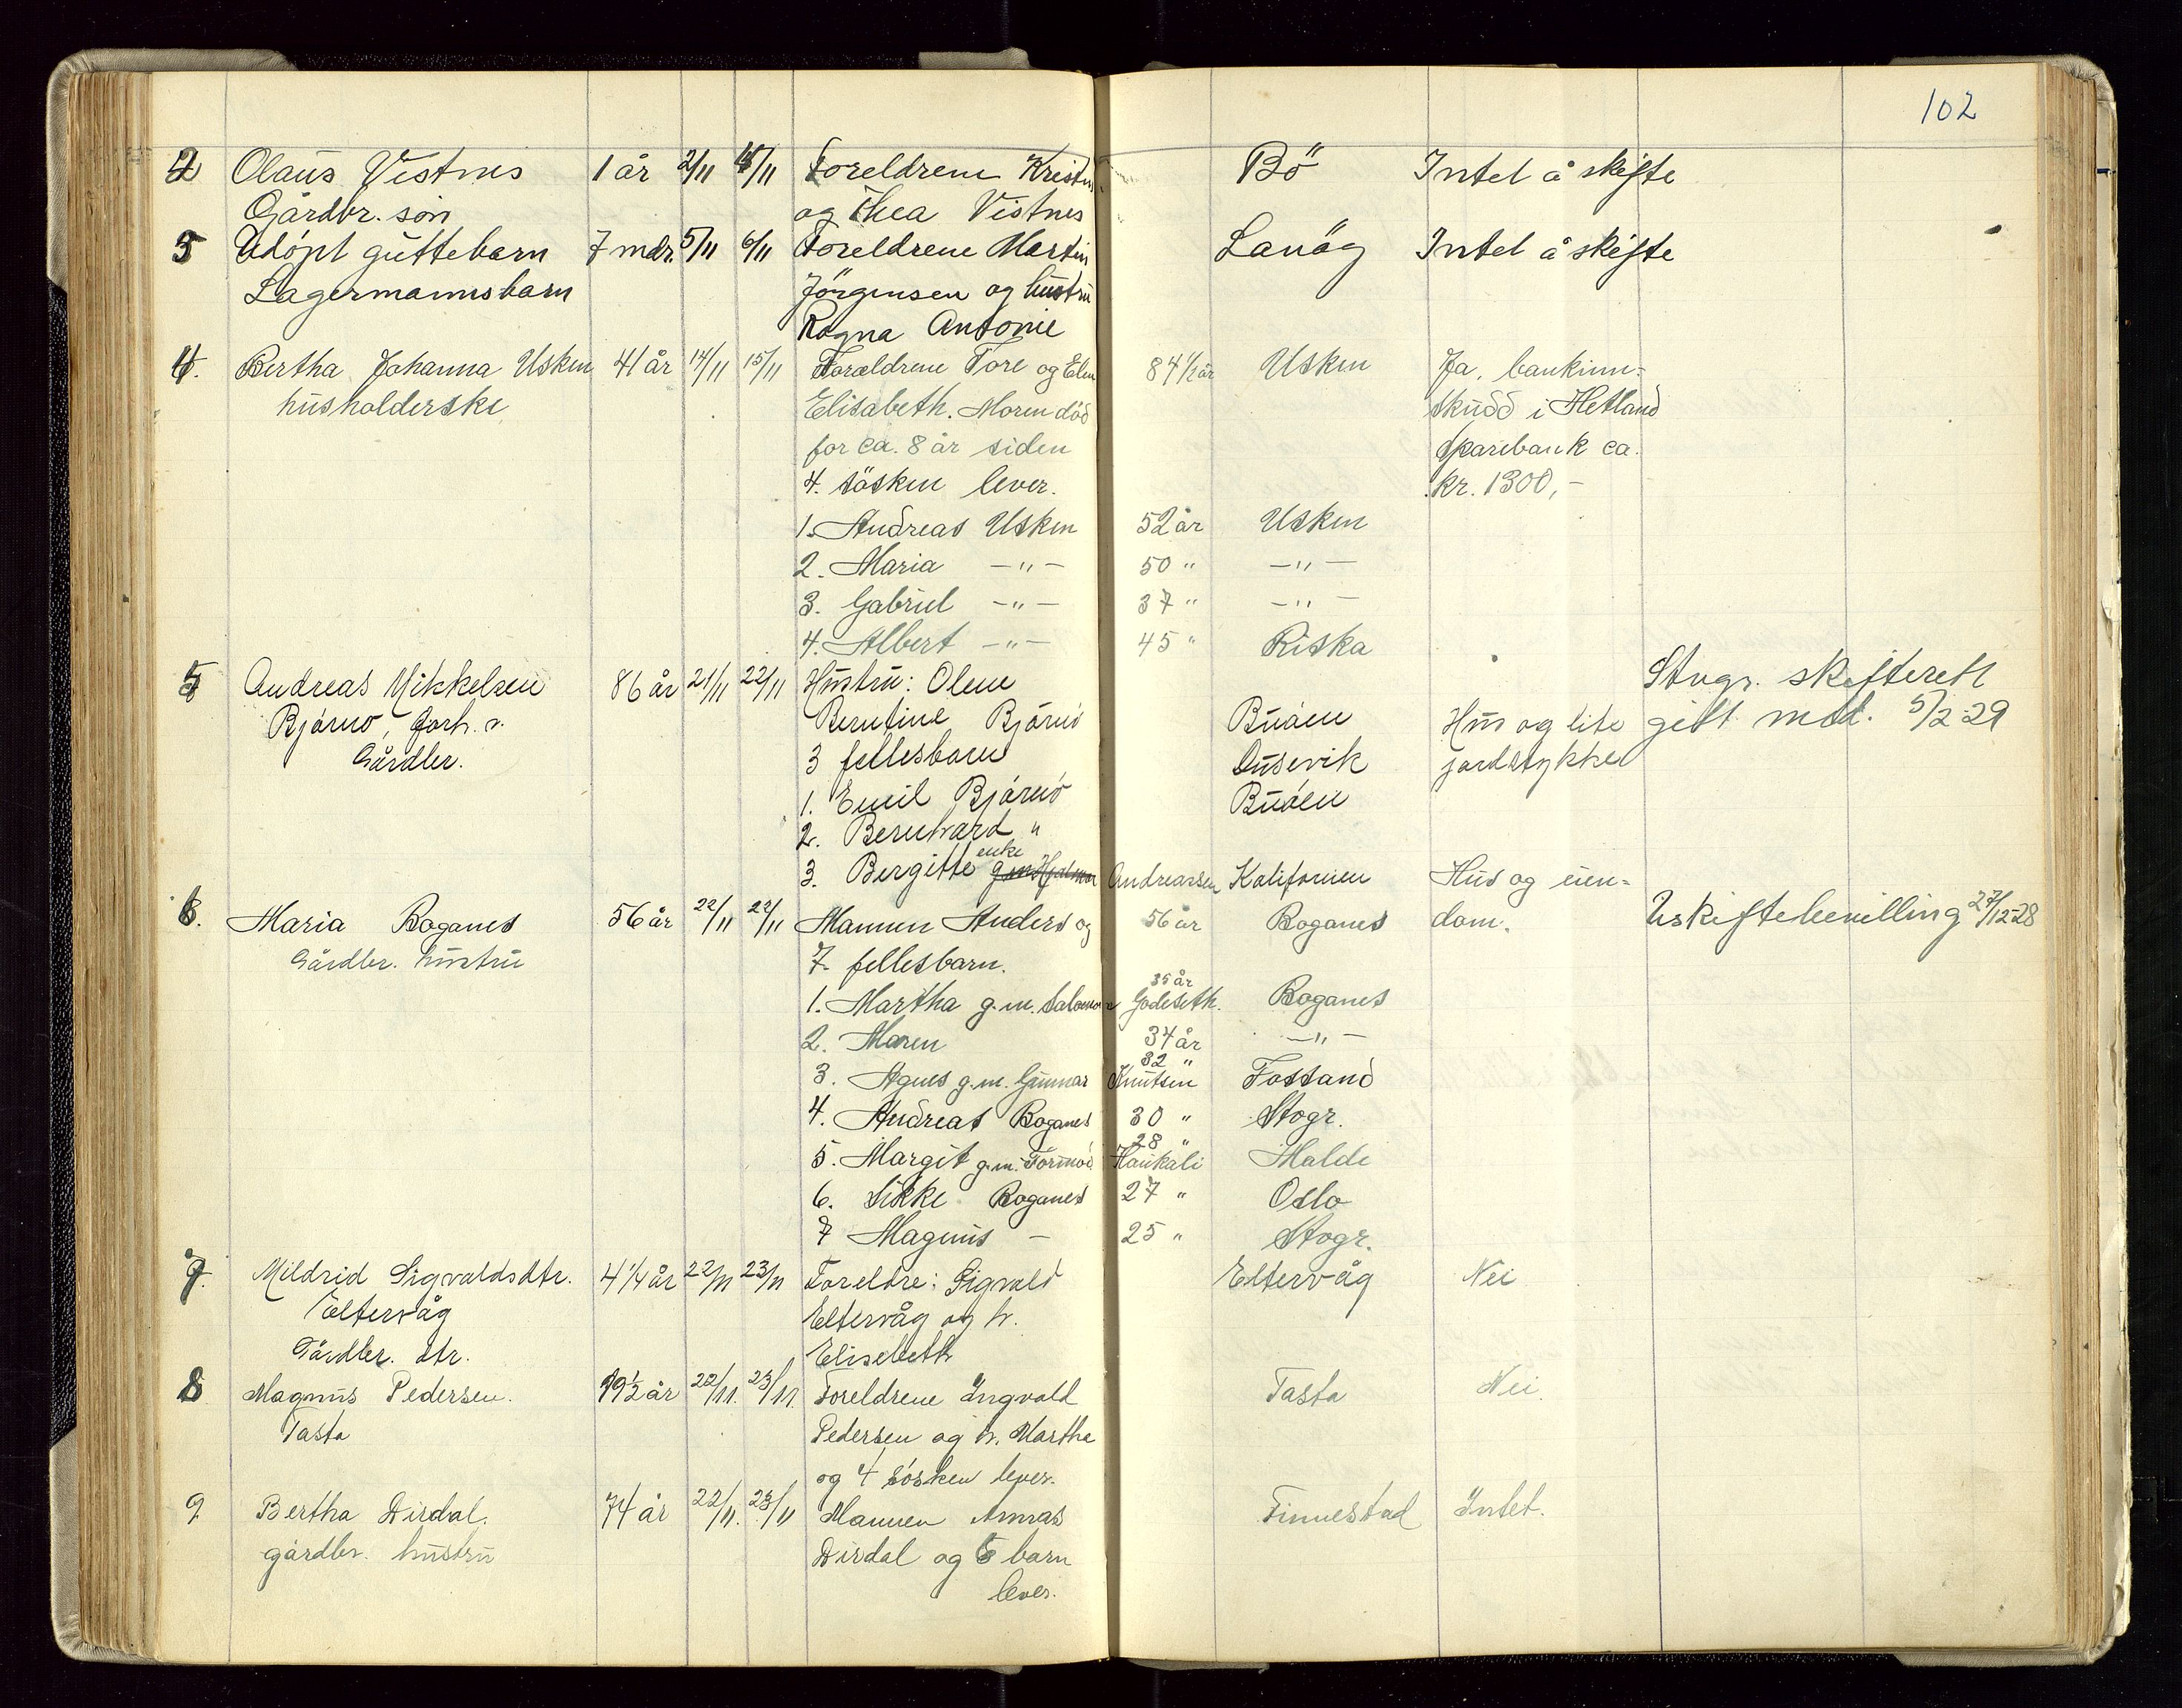 102
2 Olaus Vistnes 1 år 2/11 /11 Foreldrene Bö Intet å skifte
Gårdbr. sön og Thea Vistnes
3 Udöpt guttebarn 7 mdr. 5/11 6/11 Foreldrene Martin Lanög Intet å skifte
Lagermannsbarn Jörgensen og hustru
Ragna Antonie
4. Bertha Johanna Usken 41 år 14/11 15/11 Forældrene Tore og Elen 84 1/2 år Usken Ja, bankinn-
husholderske Elisabeth. Moren död skudd i Hetland
for ca. 8 år siden Sparebank ca.
4. sösken lever. kr. 1300,-
1. Andreas Usken 52 år Usken
2. Maria —"— 50 " —"—
3. Gabriel —"— 37 " —"—
4. Albert —"— 45 " Riska
5 Andreas Mikkelsen 86 år 21/11 22/11 Hustru: Olene Stvgr. skifterett
Bjørnø, forh. v. Berntine Bjørnø Buøen Hus og lite gitt med. 5/2-29
Gårdbr. 3 fellesbarn Dusevik jordstykke
1. Emil Bjørnø Buøen
2. Bernhard "
3. Bergitte enke gm Hjalmar Andreassen Kalifornien Hus og eien-
6. Maria Boganes 56 år 22/11 22/11 Mannen Anders og 56 år Boganes dom. Uskiftebevilling 27/12-28
Gårdbr. hustru 7 fellesbarn.
35 år
1. Martha g.m. Salomon Godeseth. Boganes
2. Maren 34 år —"—
32 "
3. Agnes g.m. Gunnar Knutsen Tastand
4. Andreas Boganes 30 " Stvgr.
28 "
5. Margit g.m. Tormod Haukali Malde
6. Sikke Boganes 27 " Oslo
7 Magnus — 25 " Stvgr.
7. Mildrid Sigvaldsdtr. 4 1/4 år 22/11 23/11 Foreldre: Sigvald Eltervåg Nei
Eltervåg Eltervåg og h.
Gårdbr. dtr. Elisebeth
8 Magnus Pedersen. 19 1/2 år 22/11. 23/11. Foreldrene Ingvald Tasta Nei.
Tasta Pedersen og h. Martha
og 4 søsken lever.
9. Bertha Dirdal. 74 år 22/11. 23/11 Mannen Finnestad Intet.
gårdbr. hustru Dirdal og 5 barn
lever.